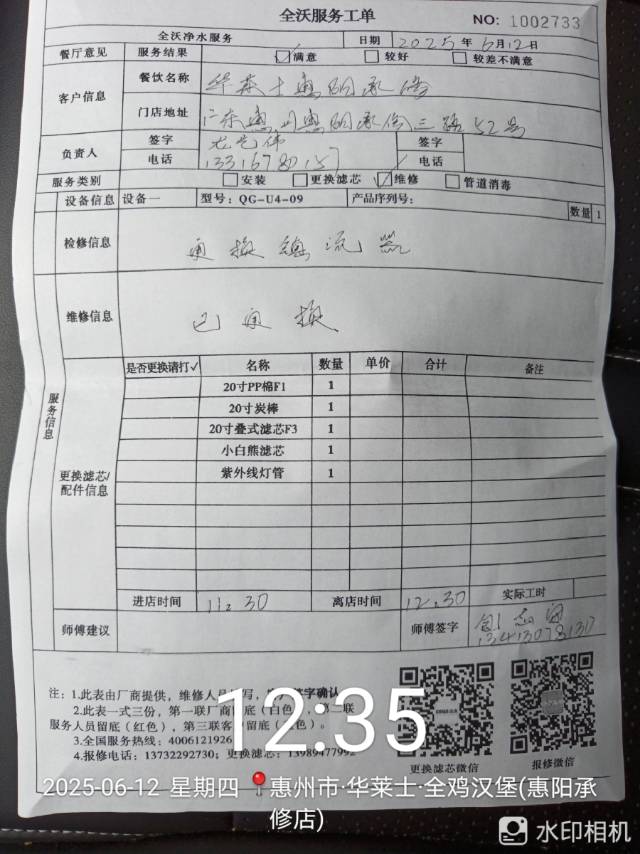 全沃服务工单
NO: 1002733
全沃净水服务 日期 2025年6月12日
餐厅意见 服务结果 ☑满意 □较好 □较差不满意
客户信息 餐饮名称 华莱士惠阳承修
门店地址 广东惠州惠阳承修三路52号
负责人 签字 签字
电话 13316780157 电话
服务类别 □安装 □更换滤芯 ☑维修 □管道消毒
设备信息 设备一 型号：QG-U4-09 产品序列号： 数量 1
检修信息 更换镇流器
维修信息 已更换
服务信息
更换滤芯/配件信息
是否更换请打√ 名称 数量 单价 合计 备注
20寸PP棉F1 1
20寸炭棒 1
20寸叠式滤芯F3 1
小白熊滤芯 1
紫外线灯管 1
进店时间 11:30 离店时间 12:30 实际工时
师傅建议 师傅签字 13413078130
注：1.此表由厂商提供，维修人员填写，签字确认
2.此表一式三份，第一联厂商留底（白色），第二联
服务人员留底（红色），第三联客户留底（黄色）。
3.全国服务热线：4006121926
4.报修电话：13732292730；更换滤芯：13989477992
更换滤芯微信 报修微信
12:35
2025-06-12 星期四 惠州市·华莱士·全鸡汉堡(惠阳承
修店)
水印相机